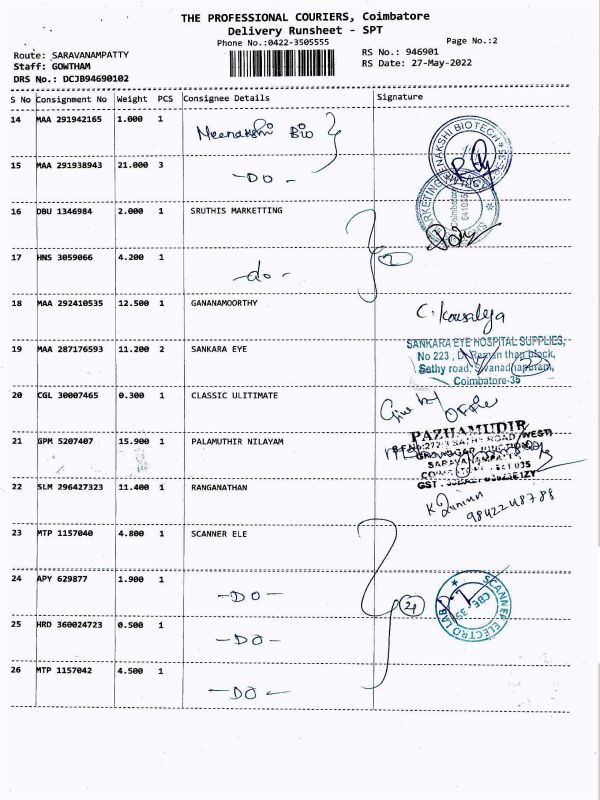 THE PROFESSIONAL COURIERS, Coimbatore
Delivery Runsheet - SPT
Phone No.:0422-3505555
Page No.:2
Route: SARAVANAMPATTY
RS No.: 946901
Staff: GOWTHAM
RS Date: 27-May-2022
DRS No.: DCJB94690102
S No Consignment No Weight PCS Consignee Details Signature
14 MAA 291942165 1.000 1 Meenakshi Bio
15 MAA 291938943 21.000 3 -DO-
16 DBU 1346984 2.000 1 SRUTHIS MARKETTING
17 HNS 3059066 4.200 1 -do-
18 MAA 292410535 12.500 1 GANANAMOORTHY C. Kousalya
19 MAA 287176593 11.200 2 SANKARA EYE
SANKARA EYE HOSPITAL SUPPLIES,
No 223 , block,
Sathy road, Sivanadhapuram,
Coimbatore-35
20 CGL 30007465 0.300 1 CLASSIC ULITIMATE
21 GPM 5207407 15.900 1 PALAMUTHIR NILAYAM
PAZHAMUDIR
22 SLM 296427323 11.400 1 RANGANATHAN
9842248788
23 MTP 1157040 4.800 1 SCANNER ELE
24 APY 629877 1.900 1 -DO-
SCANNER ELECTRO LAB
CBE 35
25 HRD 360024723 0.500 1 -DO-
26 MTP 1157042 4.500 1 -DO-